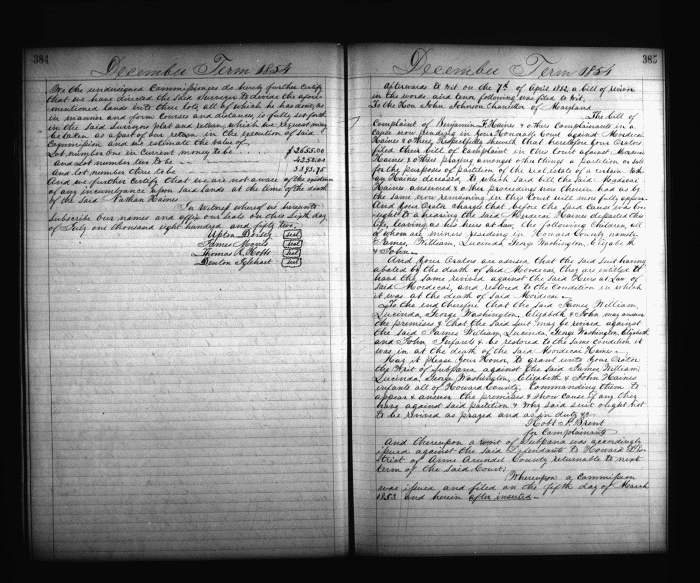 384
December Term 1854
We the undersigned Commissioners do hereby further certify
that we have directed the said Surveyor to divide the afore
mentioned lands into three lots all by which he has done, as
in manner and form courses and distances, is fully set forth
in the said Surveyors plat and return, which we request may
be taken as a part of our return in the execution of said
Commission and we estimate the value of,
Lot number one in current money to be $2655.00
And Lot number two to be 4250.00
And Lot number three to be
And we further certify that we are not aware of the existence
of any incumbrance upon said lands at the time of the death
of the said Nathan Haines
In witness whereof we hereunto
Subscribe our names and affix our seals on this sixth day
of July one thousand eight hundred and fifty two,
Seal
James Morris Seal
Thomas R. Hobbs Seal
Seal
385
December Term 1854
afterwards to wit on the 7th of April 1852, a bill of revivor
in the words and tenor following was filed to wit,
To the Hon John Johnson Chancellor of Maryland
The bill of
Complaint of Benjamin F. Haines & others Complainants in a
cause now pending in Your Honorable Court against Mordecai
Haines & others, Respectfully sheweth that heretofore Your Orators
filed their bill of Complaint in the Court against Mordecai
Haines & others praying amongst other things a partition or sale
for the purposes of partition of the real estate of a certain
Haines deceased to which said bill the said Mordecai
Haines answered & other proceedings were therein had as by
the same now remaining in this Court will more fully appear
And Your Orator charge that before the said Cause was bro
ught to a hearing the said Mordecai Haines departed this
life, leaving as his heirs at law the following children, all
of whom are minors residing in Howard County namely
James, William, Lucinda, George Washington, Elizabeth
& John.
And Your Orators are advised that the said Suit having
abated by the death of said Mordecai they are entitled to
have the same revived against the said Heirs at Law of
said Mordecai, and restored to the condition in which
it was at the death of said Mordecai.
To the end therefore that the said James, William,
Lucinda, George Washington, Elizabeth & John may answer
the premises & that the said Suit may be revived against
the said James William, Lucinda, George Washington, Elizabeth
and John Infants & be restored to the same condition it
was in at the death of the said Mordecai Haines.
May it please Your Honor, to grant unto Your Orator
the Writ of Subpœna against the said James, William,
Lucinda, George Washington, Elizabeth & John Haines
infants all of Howard County, Commanding them to
appear & answer the premises & show cause if any they
have against said partition & why said suit ought not
to be revived as prayed and as in duty &c
Robt J. Brent
for Complainants
And thereupon a writ of Subpœna was accordingly
issued against the said Defendants to Howard Dis
trict of Anne Arundel County returnable to next
term of the said Court;
Whereupon a Commission
was issued and filed on the fifth day of March
1853 and herein after inserted—